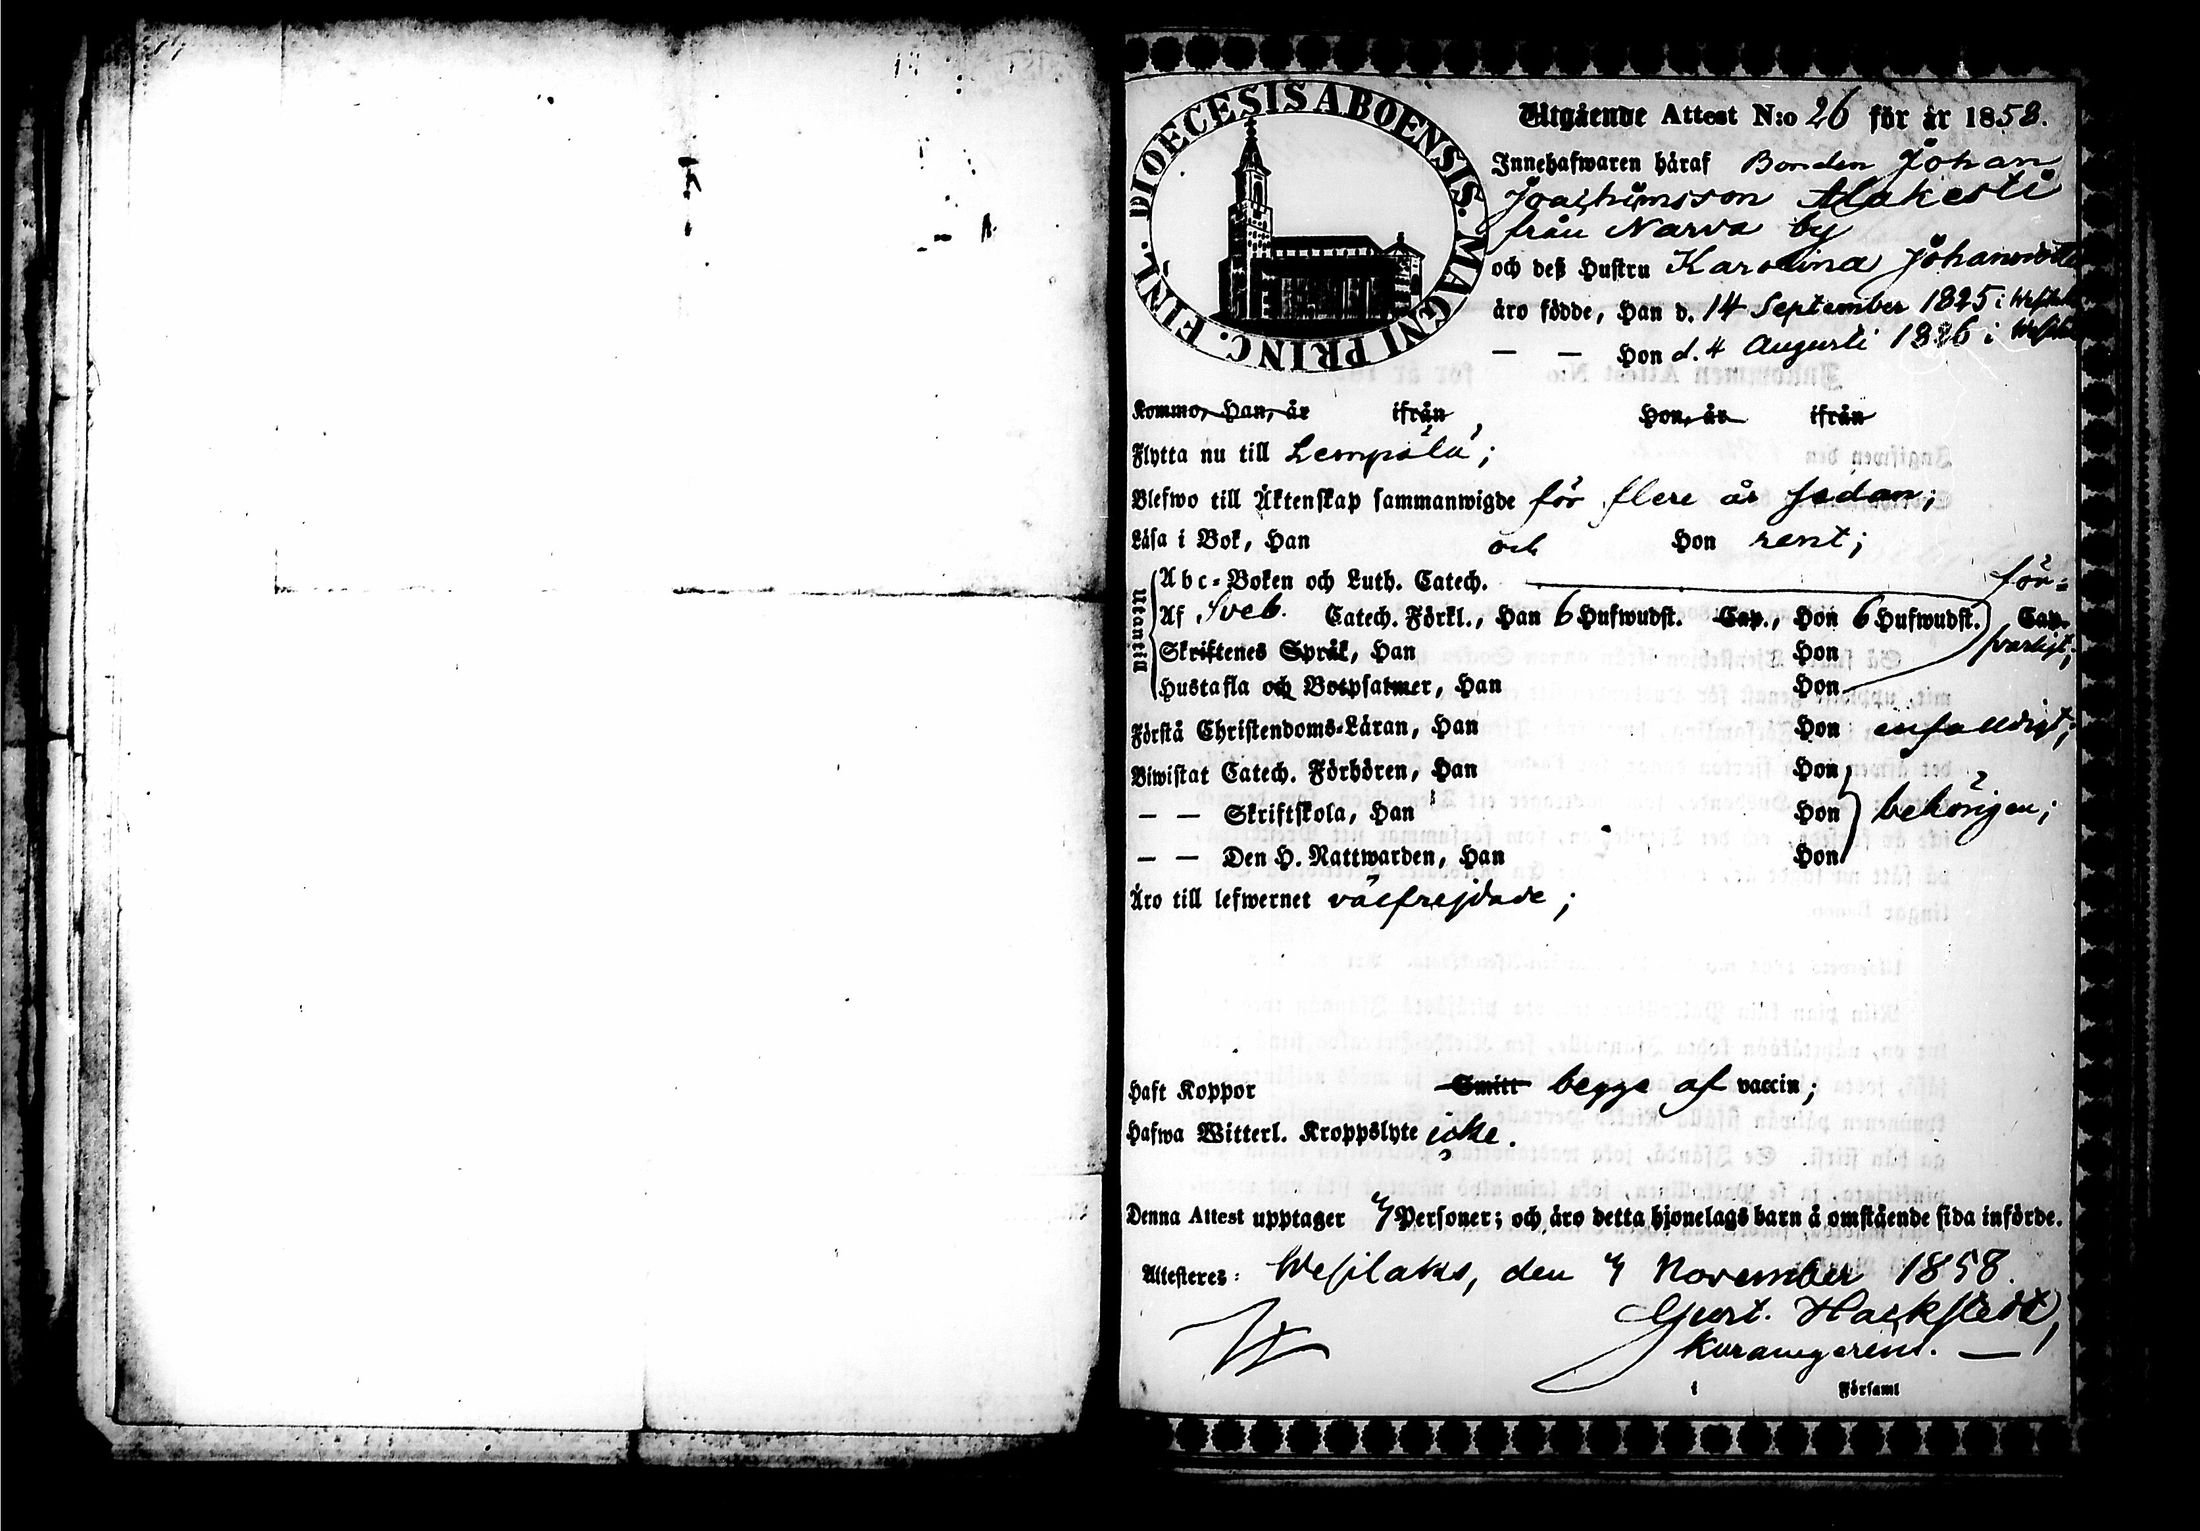 DIOECESIS ABOENSIS. MAGNI PRINC. FINL.
Utgående Attest N:o 26 för år 1858.
Innehafwaren häraf Bonden Johan
Joachimsson Alakesti
från Narva by
och deß Hustru Karolina Johansdotter
äro födde, Han d. 14 September 1825 i
— — Hon d. 4 Augusti 1826 i
Kommo, Han, år ifrån , Hon, år ifrån
Flytta nu till Lempälä;
Blefwo till Äktenskap sammanwigde för flere år sedan;
Läsa i Bok, Han och Hon rent;
Utantill
Abc-Boken och Luth. Catech. för-
Af Sveb. Catech. Förkl., Han 6 Hufwudst. Cap., Hon 6 Hufwudst. Cap.
Skriftenes Språk, Han Hon svarligt;
Hustafla och Botpsalmer, Han Hon
Förstå Christendoms-Läran, Han Hon enfalldigt;
Biwistat Catech. Förhören, Han Hon
— — Skriftskola, Han Hon behörigen;
— — Den H. Nattwarden, Han Hon
Äro till lefwernet välfrejdade;
Haft Koppor Smitt begge af vaccin;
Hafwa Witterl. Kroppslyte icke.
Denna Attest upptager 7 Personer; och äro detta hjonelags barn å omstående sida införde.
Attesteres: Wesilaks, den 7 November 1858.
Gust. Hackstedt,
i Församl